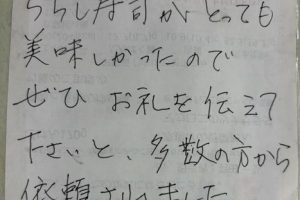 ちらし寿司がとっても
美味しかったので
ぜひ お礼を伝えて
下さいと、多数の方から
依頼されました